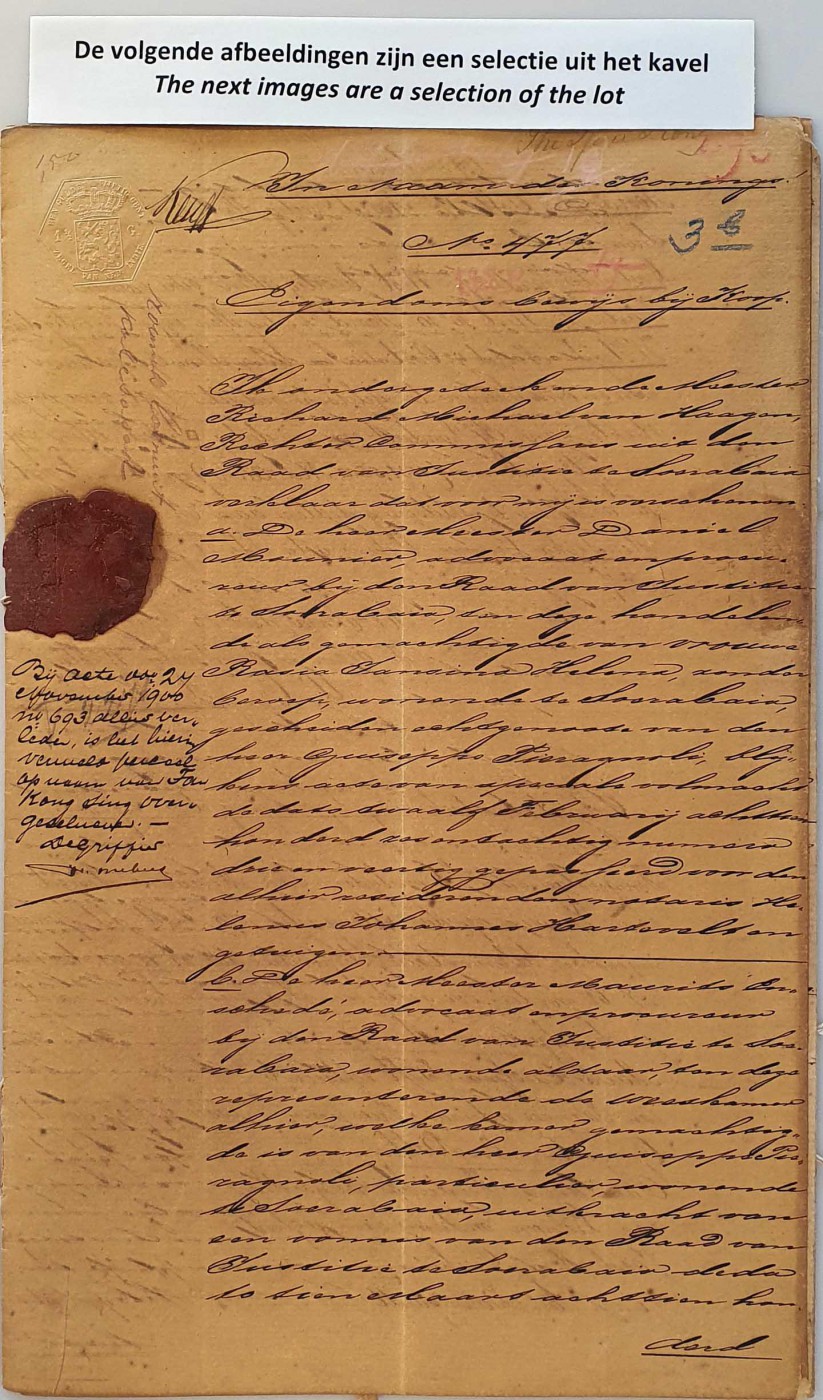 De volgende afbeeldingen zijn een selectie uit het kavel
The next images are a selection of the lot
150
In Naam des Konings!
No. 477.
3 b
Eigendoms bewijs bij Koop.
Ik ondergeteekende Meester
Richard Michael van Haagen,
Rechter Commissaris uit den
Raad van Justitie te Soerabaia
verklaar dat voor mij is verschenen
a. De heer Meester Daniël
Mounier, advocaat en procu-
reur bij den Raad van Justitie
te Soerabaia, ten deze handelen-
de als gemachtigde van vrouwe
Rosia Jansina Helena, zonder
beroep, wonende te Soerabaia,
gescheiden echtgenoote van den
heer Guiseppe Pieragnoli, blij-
kens acte van speciale volmacht
de dato twaalf Februarij achttien
honderd zes en tachtig numero
drie en veertig gepasseerd voor den
alhier resideerenden notaris He-
lenus Johannes Hartevelt en
getuigen.
b. De heer Meester Maurits En-
schedé, advocaat en procureur
bij den Raad van Justitie te Soe-
rabaia, wonende aldaar, ten deze
representeerende de weeskamer
alhier, welke kamer gemachtig-
de is van den heer Guiseppe Pie-
ragnoli, particulier, wonende
te Soerabaia, uitkracht van
een vonnis van den Raad van
Justitie te Soerabaia de da-
to tien Maart achttien hon-
derd
Bij acte van 24
November 1900
no 693 alhier ver-
leden, is het hierin
vermeld perceel
op naam van Tan
Kong Sing over-
geschreven. —
De Griffier